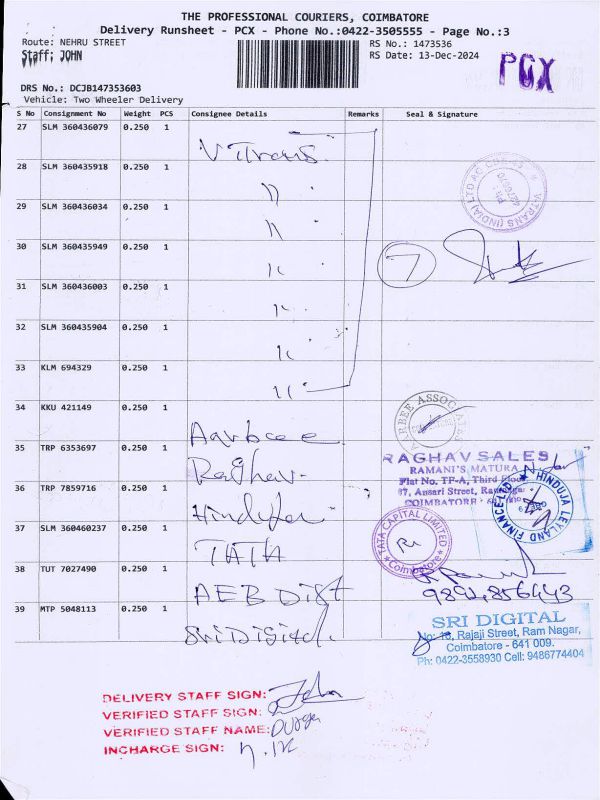 THE PROFESSIONAL COURIERS, COIMBATORE
Delivery Runsheet - PCX - Phone No.:0422-3505555 - Page No.:3
Route: NEHRU STREET
RS No.: 1473536
Staff: JOHN
RS Date: 13-Dec-2024
PCX
DRS No.: DCJB147353603
Vehicle: Two Wheeler Delivery
S No Consignment No Weight PCS Consignee Details Remarks Seal & Signature
27 SLM 360436079 0.250 1 V Trans
28 SLM 360435918 0.250 1 "
29 SLM 360436034 0.250 1 "
30 SLM 360435949 0.250 1 " 7
31 SLM 360436003 0.250 1 "
32 SLM 360435904 0.250 1 "
33 KLM 694329 0.250 1 "
V-TRANS (INDIA) LTD
34 KKU 421149 0.250 1 Aarbee
AARBEE ASSOCIATES
35 TRP 6353697 0.250 1 Raghav
RAGHAV SALES
RAMANI'S MATURA
Flat No. TF-A, Third Floor
67, Ansari Street,
COIMBATORE
36 TRP 7859716 0.250 1 Hinduja
HINDUJA LEYLAND FINANCE LTD
37 SLM 360460237 0.250 1 TATA
TATA CAPITAL LIMITED
Coimbatore
38 TUT 7027490 0.250 1 AEB Dist
39 MTP 5048113 0.250 1 Sri Digital
SRI DIGITAL
Rajaji Street, Ram Nagar,
Coimbatore - 641 009.
Ph: 0422-3558930 Cell: 9486774404
DELIVERY STAFF SIGN: John
VERIFIED STAFF SIGN:
VERIFIED STAFF NAME: Durga
INCHARGE SIGN: